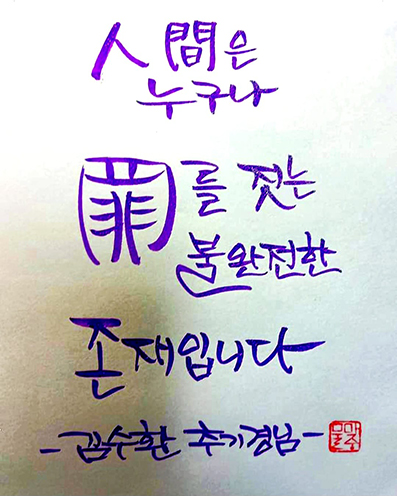 人間은
누구나
罪를 짓는
불완전한
존재입니다
-김수환 추기경님-